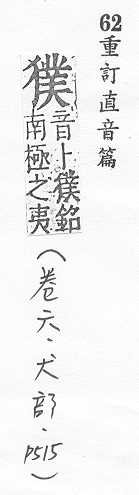 62重訂直音篇
獛音卜獛鉛
南極之夷
(卷六·犬部·P515)